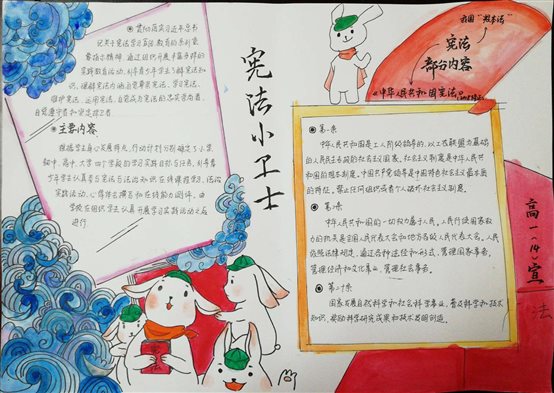 贯彻落实习近平总书
记关于宪法学习宣传教育的系列重
要指示精神，通过组织开展丰富多彩的
实践教育活动，引导青少年学生了解宪法知
识，理解宪法内涵，自觉尊崇宪法、学习宪法、
维护宪法、运用宪法，自觉成为宪法的忠实崇尚者、
自觉遵守者和坚定捍卫者
主要内容
根据学生身心发展特点，行动计划分别确定了小学、
初中、高中、大学四个学段的学习实践目标与任务，引导青
少年学生认真参与宪法与法治知识在线课程学习、法治
实践活动、心得体会撰写和在线能力测评，由
学校在组织学生认真开展学习实践活动之后
进行
宪法小卫士
我国“根本法”
宪法
部分内容
《中华人民共和国宪法》
第一条
中华人民共和国是工人阶级领导的、以工农联盟为基础
的人民民主专政的社会主义国家。社会主义制度是中华人民共
和国的根本制度。中国共产党领导是中国特色社会主义最本质
的特征。禁止任何组织或者个人破坏社会主义制度。
第二条
中华人民共和国的一切权力属于人民。人民行使国家权
力的机关是全国人民代表大会和地方各级人民代表大会。人民
依照法律规定，通过各种途径和形式，管理国家事务，
管理经济和文化事业，管理社会事务。
第二十条
国家发展自然科学和社会科学事业，普及科学和技术
知识，奖励科学研究成果和技术发明创造。
高一（14）宣
法